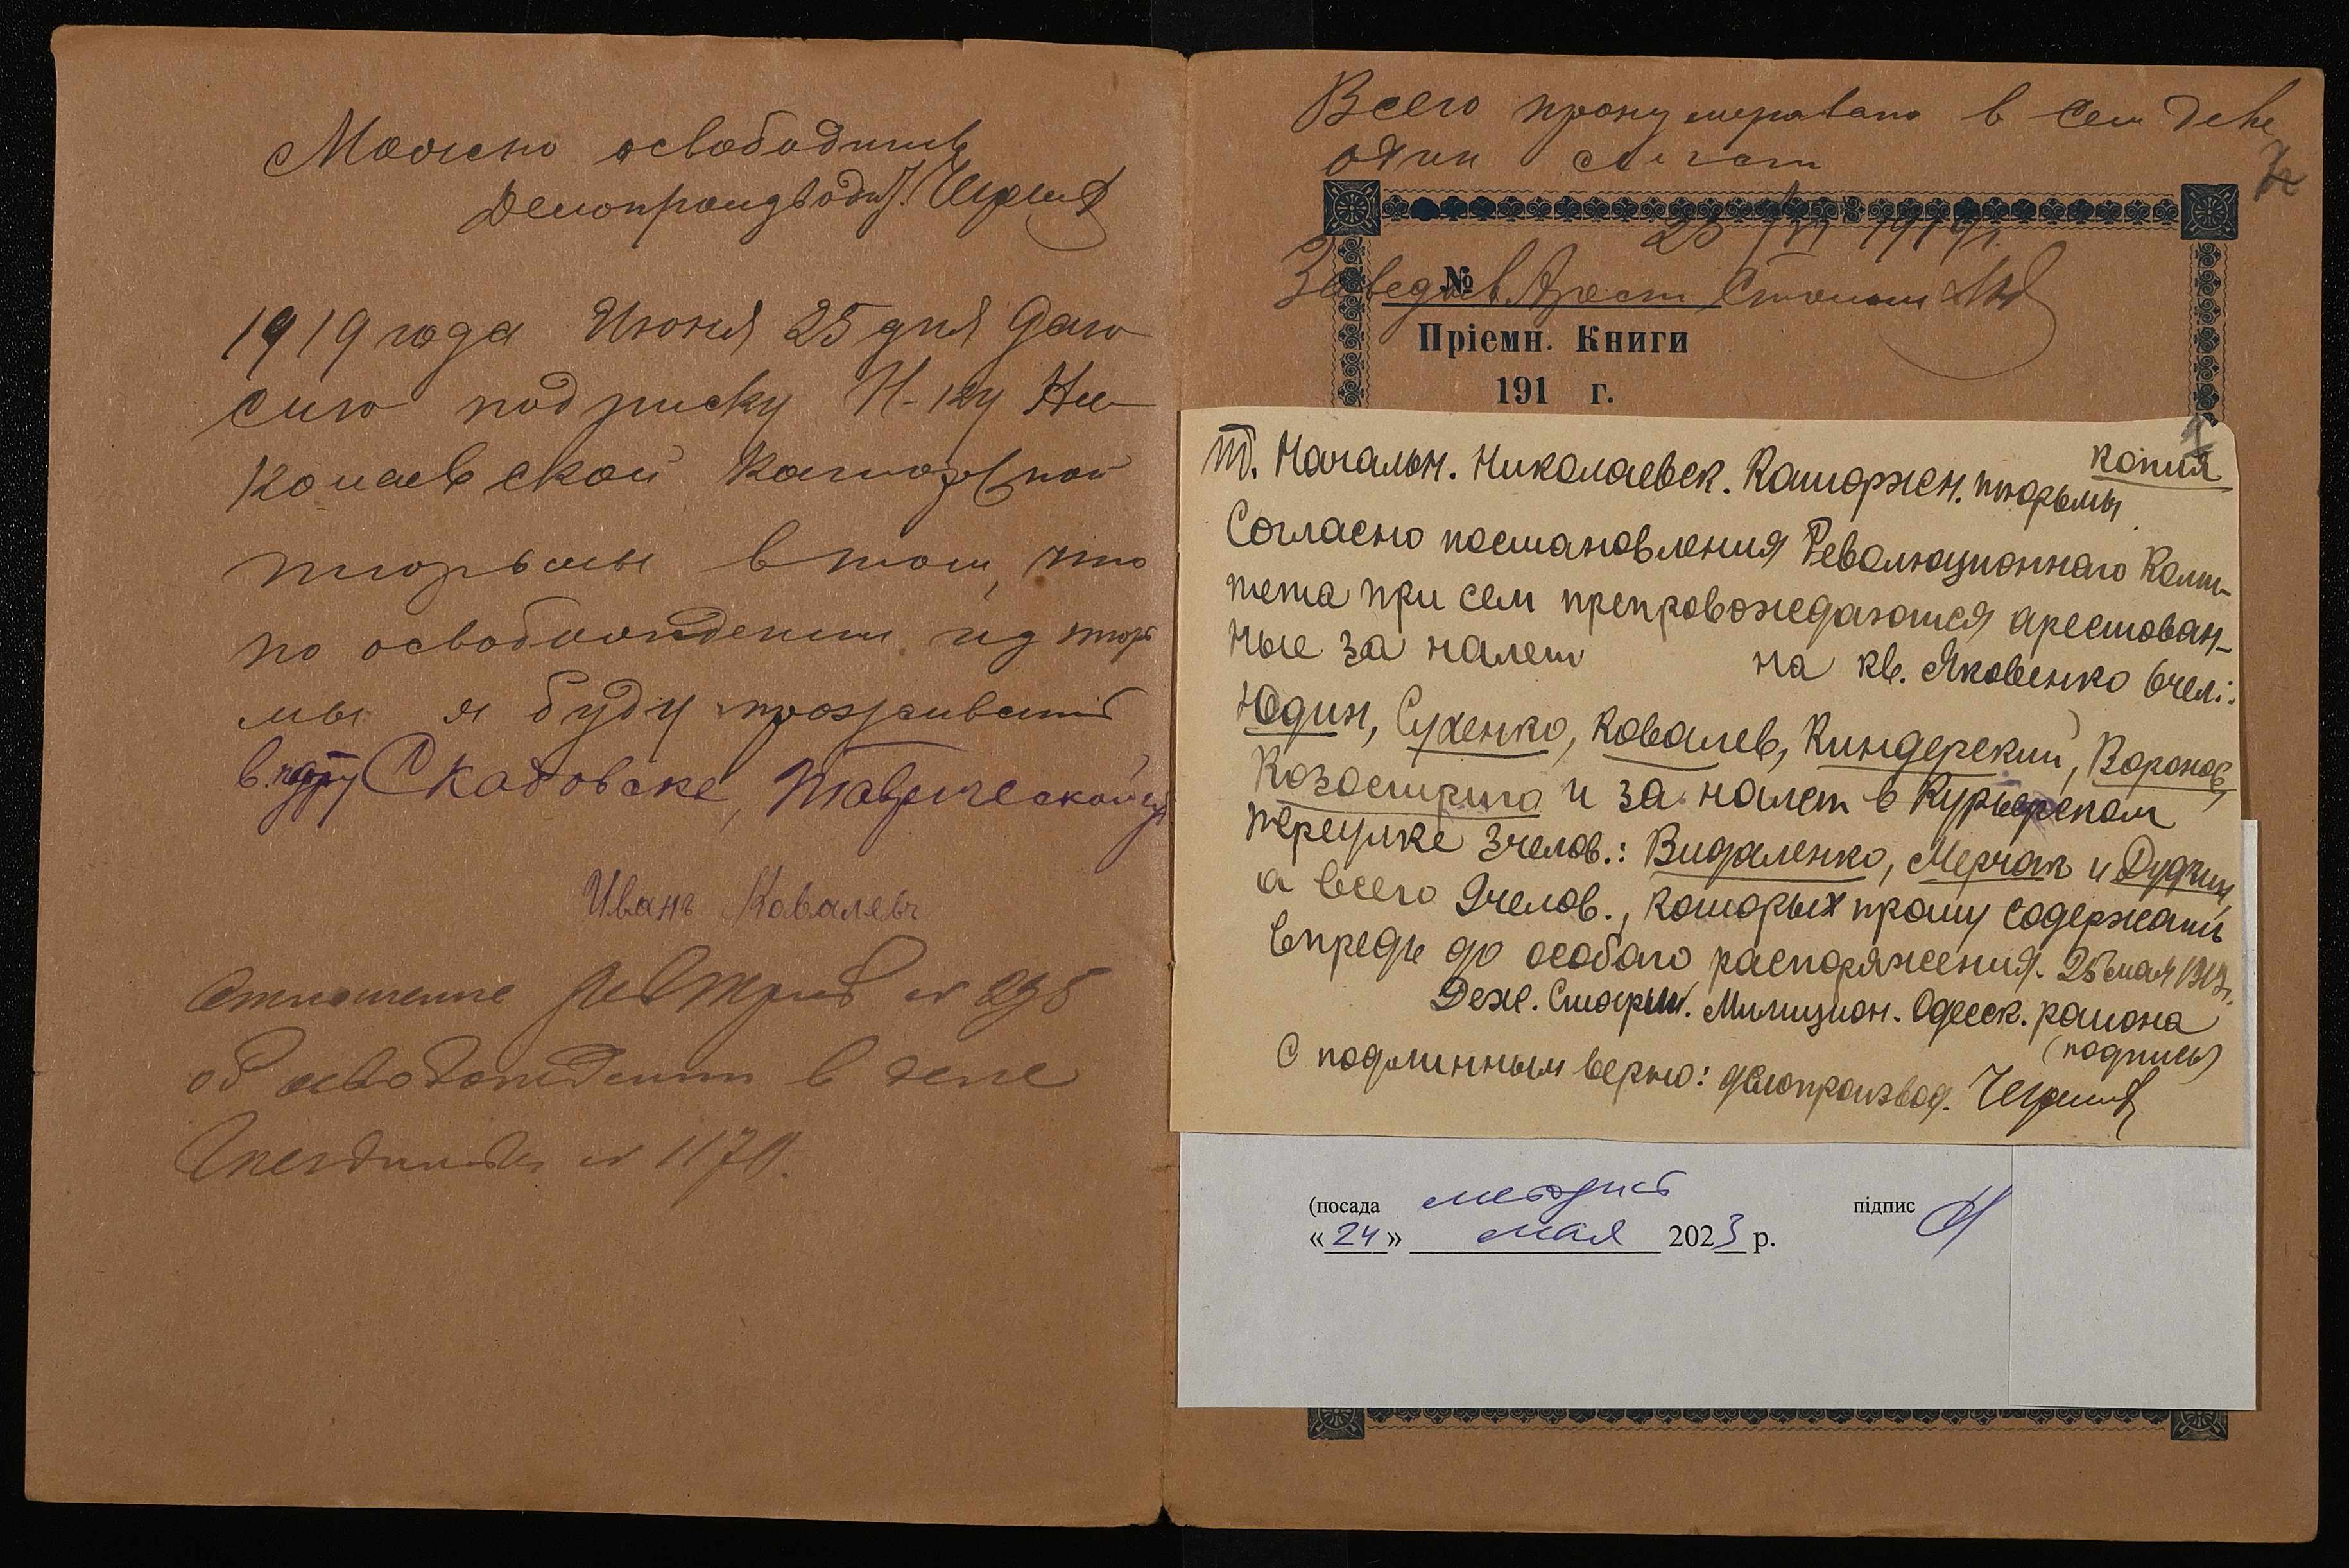 Можно освободить
Делопроизвод.
1919 года Июня 25 дня даю
сию подписку Н-ку Ни-
колаевской каторжной
тюрьмы в том, что
по освобождении из тюрь
мы я буду проживать
в Скадовске, Таврической
Иванъ Ковалевъ
Отношение №
об освобождении в деле
№ 1170.
Всего пронумеровано в сем деле
один лист
1919 г.
№
Пріемн. Книги
191 г.
копия
т. Начальн. Николаевск. Каторжн. тюрьмы
Согласно постановления Революционнаго Коми-
тета при сем препровождаются арестован-
ные за налет на кв. Яковенко 6 чел:
Юдин, Сухенко, Ковалев, Киндерский, Воронов,
и за налет в Курьерском
переулке 3 челов.: Видаленко, Мерчак и Дудкин,
а всего 9 челов., которых прошу содержать
впредь до особаго распоряжения. 25 мая 1919 г.
Деж. Старш. Милицион. Одесск. района
(подпись)
С подлинным верно: делопроизвод.
(посада методист підпис
«24» мая 2023 р.